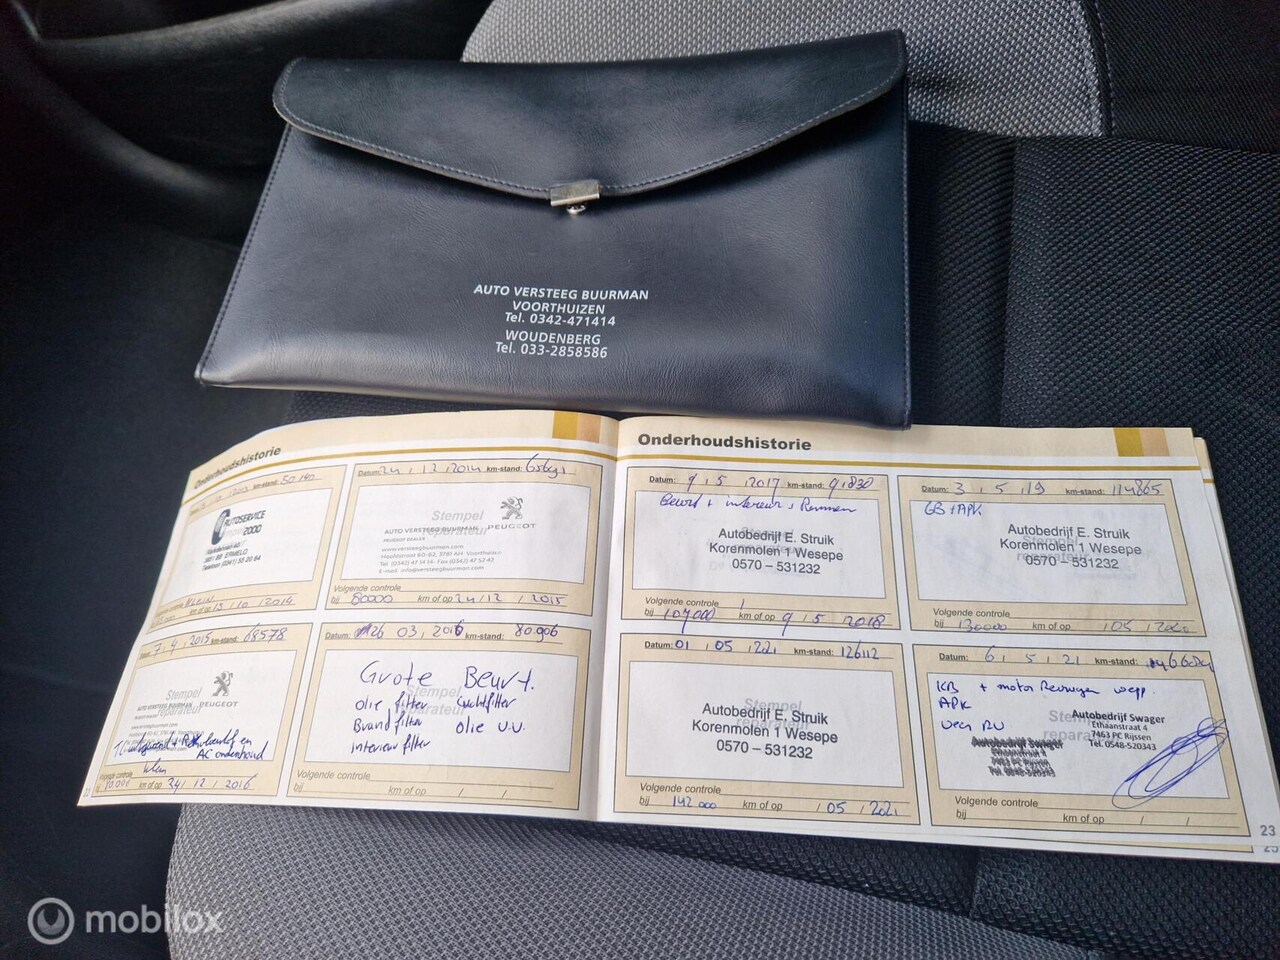 AUTO VERSTEEG BUURMAN
VOORTHUIZEN
Tel. 0342-471414
WOUDENBERG
Tel. 033-2858586
Onderhoudshistorie
km-stand: 50140
AUTOSERVICE
2000
ERMELO
km of op 13 / 10 / 2014
Datum: 24 / 12 / 2014 km-stand:
Stempel
reparateur
PEUGEOT
AUTO VERSTEEG BUURMAN
PEUGEOT DEALER
www.versteegbuurman.com
Hoofdstraat 60-62, 3781 AH Voorthuizen
Tel. (0342) 47 14 14 - Fax (0342) 47 52 42
E-mail: info@versteegbuurman.com
Volgende controle
bij 80000 km of op 24 / 12 / 2015
Datum: 7 / 4 / 2015 km-stand: 68578
Stempel
reparateur
PEUGEOT
AUTO VERSTEEG BUURMAN
AC onderhoud
klein
Volgende controle
bij km of op 24 / 12 / 2016
Datum: 26 03 / 2016 km-stand: 80.906
Stempel
reparateur
Grote Beurt.
olie filter luchtfilter
Brand filter olie v.v.
interieur filter
Volgende controle
bij km of op / /
Onderhoudshistorie
Datum: 9 / 5 / 2017 km-stand: 91830
Beurt + interieur + Remmen
Stempel
Autobedrijf E. Struik
Korenmolen 1 Wesepe
0570 – 531232
Volgende controle
bij 107000 km of op 9 / 5 / 2018
Datum: 3 / 5 / 19 km-stand: 114865
GB + APK
Stempel
reparateur
Autobedrijf E. Struik
Korenmolen 1 Wesepe
0570 – 531232
Volgende controle
bij 130000 km of op / 05 / 2020
Datum: 01 / 05 / 221 km-stand: 126112
Stempel
reparateur
Autobedrijf E. Struik
Korenmolen 1 Wesepe
0570 – 531232
Volgende controle
bij 142000 km of op / 05 / 2021
Datum: 6 / 5 / 21 km-stand:
KB + motor Reinigen
APK
Stempel
reparateur
Autobedrijf Swager
Ethaanstraat 4
7463 PC Rijssen
Tel. 0548-520343
Autobedrijf Swager
Ethaanstraat 4
7463 PC Rijssen
Tel. 0548-520343
Volgende controle
bij km of op / /
23
25
mobilox